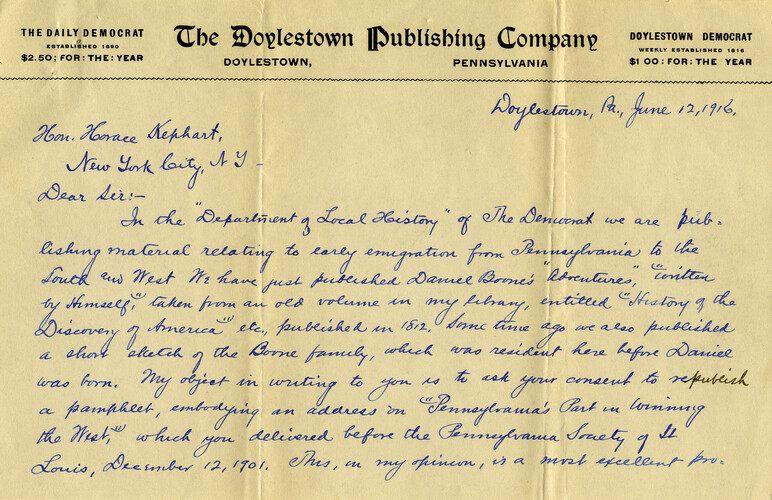 THE DAILY DEMOCRAT
ESTABLISHED 1890
$2.50; FOR : THE : YEAR
The Doylestown Publishing Company
DOYLESTOWN, PENNSYLVANIA
DOYLESTOWN DEMOCRAT
WEEKLY ESTABLISHED 1816
$1 00 : FOR : THE YEAR
Doylestown, Pa., June 12, 1916.
Hon. Horace Kephart,
New York City, N Y -
Dear Sir:-
In the "Department of Local History" of The Democrat we are pub-
lishing material relating to early emigration from Pennsylvania to the
South and West We have just published Daniel Boone's "Adventures", "written
by Himself," taken from an old volume in my library, entitled "History of the
Discovery of America" etc., published in 1812. Some time ago we also published
a short sketch of the Boone family, which was resident here before Daniel
was born. My object in writing to you is to ask your consent to republish
a pamphlet, embodying an address on "Pennsylvania's Part in Winning
the West," which you delivered before the Pennsylvania Society of St
Louis, December 12, 1901. This, in my opinion, is a most excellent pro-